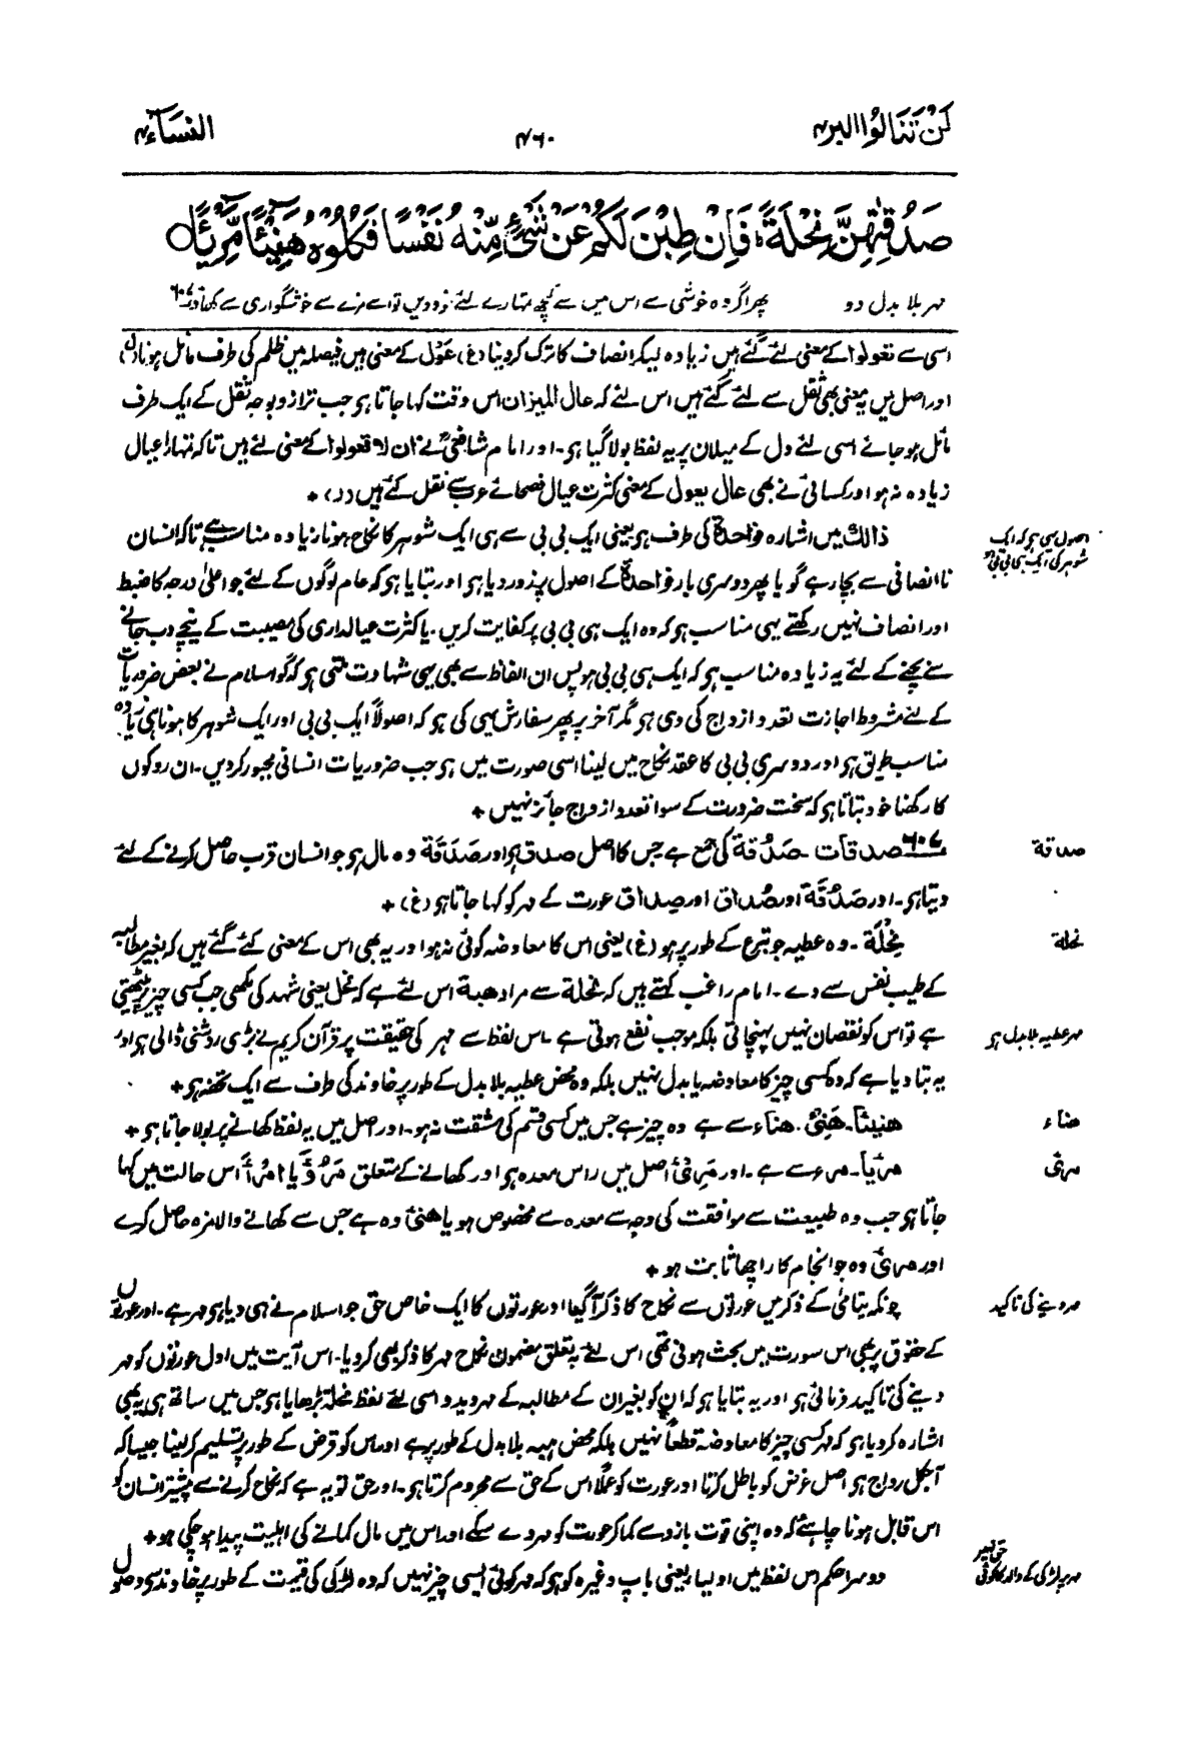 لَنْ تَنَالُوا البر ۴
۴۶۰
النسآء ۴
صَدُقٰتِهِنَّ نِحْلَةً ؕ فَاِنْ طِبْنَ لَكُمْ عَنْ شَىْءٍ مِّنْهُ نَفْسًا فَكُلُوْهُ هَنِيْٓئًا مَّرِيْٓئًا ○
مہر بلا بدل دو پھر اگر وہ خوشی سے اس میں سے کچھ تمہارے لئے چھوڑ دیں تو اسے مزے سے خوشگواری سے کھاؤ ۶۰۷
اسی سے تعولوا کے معنی لئے گئے ہیں زیادہ لیکر انصاف کا ترک کر دینا (غ) عَوْل کے معنی ہیں فیصلہ میں ظلم کی طرف مائل ہونا (ل)
اور اصل میں یہ معنی بھی ثقل سے لئے گئے ہیں اس لئے کہ عال المیزان اس وقت کہا جاتا ہو جب ترازو بوجہ ثقل کے ایک طرف
مائل ہو جائے اسی لئے دل کے میلان پر یہ لفظ بولا گیا ہو۔ اور امام شافعیؒ نے ان لا تعولوا کے معنی لئے ہیں تاکہ تمہارا عیال
زیادہ نہ ہو اور کسائی نے بھی عال یعول کے معنی کثرت عیال فصحائے عرب سے نقل کئے ہیں (ر) +
ذالك میں اشارہ فواحدة کی طرف ہو یعنی ایک بی بی سے ہی ایک شوہر کا نکاح ہونا زیادہ مناسب ہے تاکہ انسان
اصول یہی ہو کہ ایک
شوہر کی ایک ہی بی بی ہو
ناانصافی سے بچا رہے گویا پھر دوسری بار فواحدة کے اصول پر زور دیا ہو اور بتایا ہو کہ عام لوگوں کے لئے جو اعلیٰ درجہ کا ضبط
اور انصاف نہیں رکھتے یہی مناسب ہو کہ وہ ایک ہی بی بی پر کفایت کریں۔ یا کثرت عیالداری کی مصیبت کے نیچے دب جانے
سے بچنے کے لئے یہ زیادہ مناسب ہو کہ ایک ہی بی بی ہو پس ان الفاظ سے بھی یہی شہادت ملتی ہو کہ گو اسلام نے بعض ضروریات
کے لئے مشروط اجازت تعدد ازدواج کی دی ہو مگر آخر پر پھر سفارش یہی کی ہو کہ اصولاً ایک بی بی اور ایک شوہر کا ہونا ہی زیادہ
مناسب طریق ہو اور دوسری بی بی کا عقد نکاح میں لینا اسی صورت میں ہو جب ضروریات انسانی مجبور کر دیں۔ ان روکوں
کا رکھنا خود بتاتا ہو کہ سخت ضرورت کے سوا تعدد ازدواج جائز نہیں +
۶۰۷ صدقات۔ صَدُقة کی جمع ہے جس کا اصل صدق ہو اور صَدَقَة وہ مال ہو جو انسان قرب حاصل کرنے کے لئے
صداقة
دیتا ہو۔ اور صَدُقَة اور صُداق اور صِداق عورت کے مہر کو کہا جاتا ہو (غ) +
نِحْلَة۔ وہ عطیہ جو تبرع کے طور پر ہو (غ) یعنی اس کا معاوضہ کوئی نہ ہو اور یہ بھی اس کے معنی کئے گئے ہیں کہ بغیر مطالبہ
نحلة
کے طیب نفس سے دے۔ امام راغب کہتے ہیں کہ نحلة سے مراد هبة اس لئے ہے کہ نحل یعنی شہد کی مکھی جب کسی چیز پر بیٹھتی
ہے تو اس کو نقصان نہیں پہنچاتی بلکہ موجب نفع ہوتی ہے۔ اس لفظ سے مہر کی حقیقت پر قرآن کریم نے بڑی روشنی ڈالی ہو اور
مہر عطیہ بلا بدل ہو
یہ بتا دیا ہے کہ وہ کسی چیز کا معاوضہ یا بدل نہیں بلکہ وہ محض عطیہ بلا بدل کے طور پر خاوند کی طرف سے ایک تحفہ ہو +
هنیئاً۔ هَنِیْٔ۔ هناء سے ہے وہ چیز ہے جس میں کسی قسم کی مشقت نہ ہو۔ اور اصل میں یہ لفظ کھانے پر بولا جاتا ہو +
هناء
مریٔا۔ مرء سے ہے۔ اور مَرِیْٔ اصل میں راس معدہ ہو اور کھانے کے متعلق مَرُؤَ یا امْرَأَ اس حالت میں کہا
مریٔ
جاتا ہو جب وہ طبیعت سے موافقت کی وجہ سے معدہ سے مخصوص ہو یا هنیٔ وہ ہے جس سے کھانے والا مزہ حاصل کرے
اور مریٔ وہ جو انجام کار اچھا ثابت ہو +
چونکہ یتامیٰ کے ذکر میں عورتوں سے نکاح کا ذکر آ گیا اور عورتوں کا ایک خاص حق جو اسلام نے ہی دیا ہو مہر ہے۔ اور عورتوں
مہر دینے کی تاکید
کے حقوق پر بھی اس سورت میں بحث ہونی تھی اس لئے بہ تعلق مضمون نکاح مہر کا ذکر بھی کر دیا۔ اس آیت میں اول عورتوں کو مہر
دینے کی تاکید فرمائی ہو اور یہ بتایا ہو کہ ان کو بغیر ان کے مطالبہ کے مہر دیدو اسی لئے لفظ نحلة بڑھایا ہو جس میں ساتھ ہی یہ بھی
اشارہ کر دیا ہو کہ مہر کسی چیز کا معاوضہ قطعاً نہیں بلکہ محض ہبہ بلا بدل کے طور پر ہے اور اس کو قرض کے طور پر تسلیم کر لینا جیسا کہ
آجکل رواج ہو اصل غرض کو باطل کرتا اور عورت کو عملاً اس کے حق سے محروم کرتا ہو۔ اور حق تو یہ ہے کہ نکاح کرنے سے پیشتر انسان کو
اس قابل ہونا چاہئے کہ وہ اپنی قوت بازو سے کما کر عورت کو مہر دے سکے اور اس میں مال کمانے کی اہلیت پیدا ہو چکی ہو +
دوسرا حکم اس لفظ میں اولیا یعنی باپ وغیرہ کو ہو کہ مہر کوئی ایسی چیز نہیں کہ وہ لڑکی کی قیمت کے طور پر خاوند سے وصول
مہر پر لڑکی کے والد کا کوئی
حق نہیں